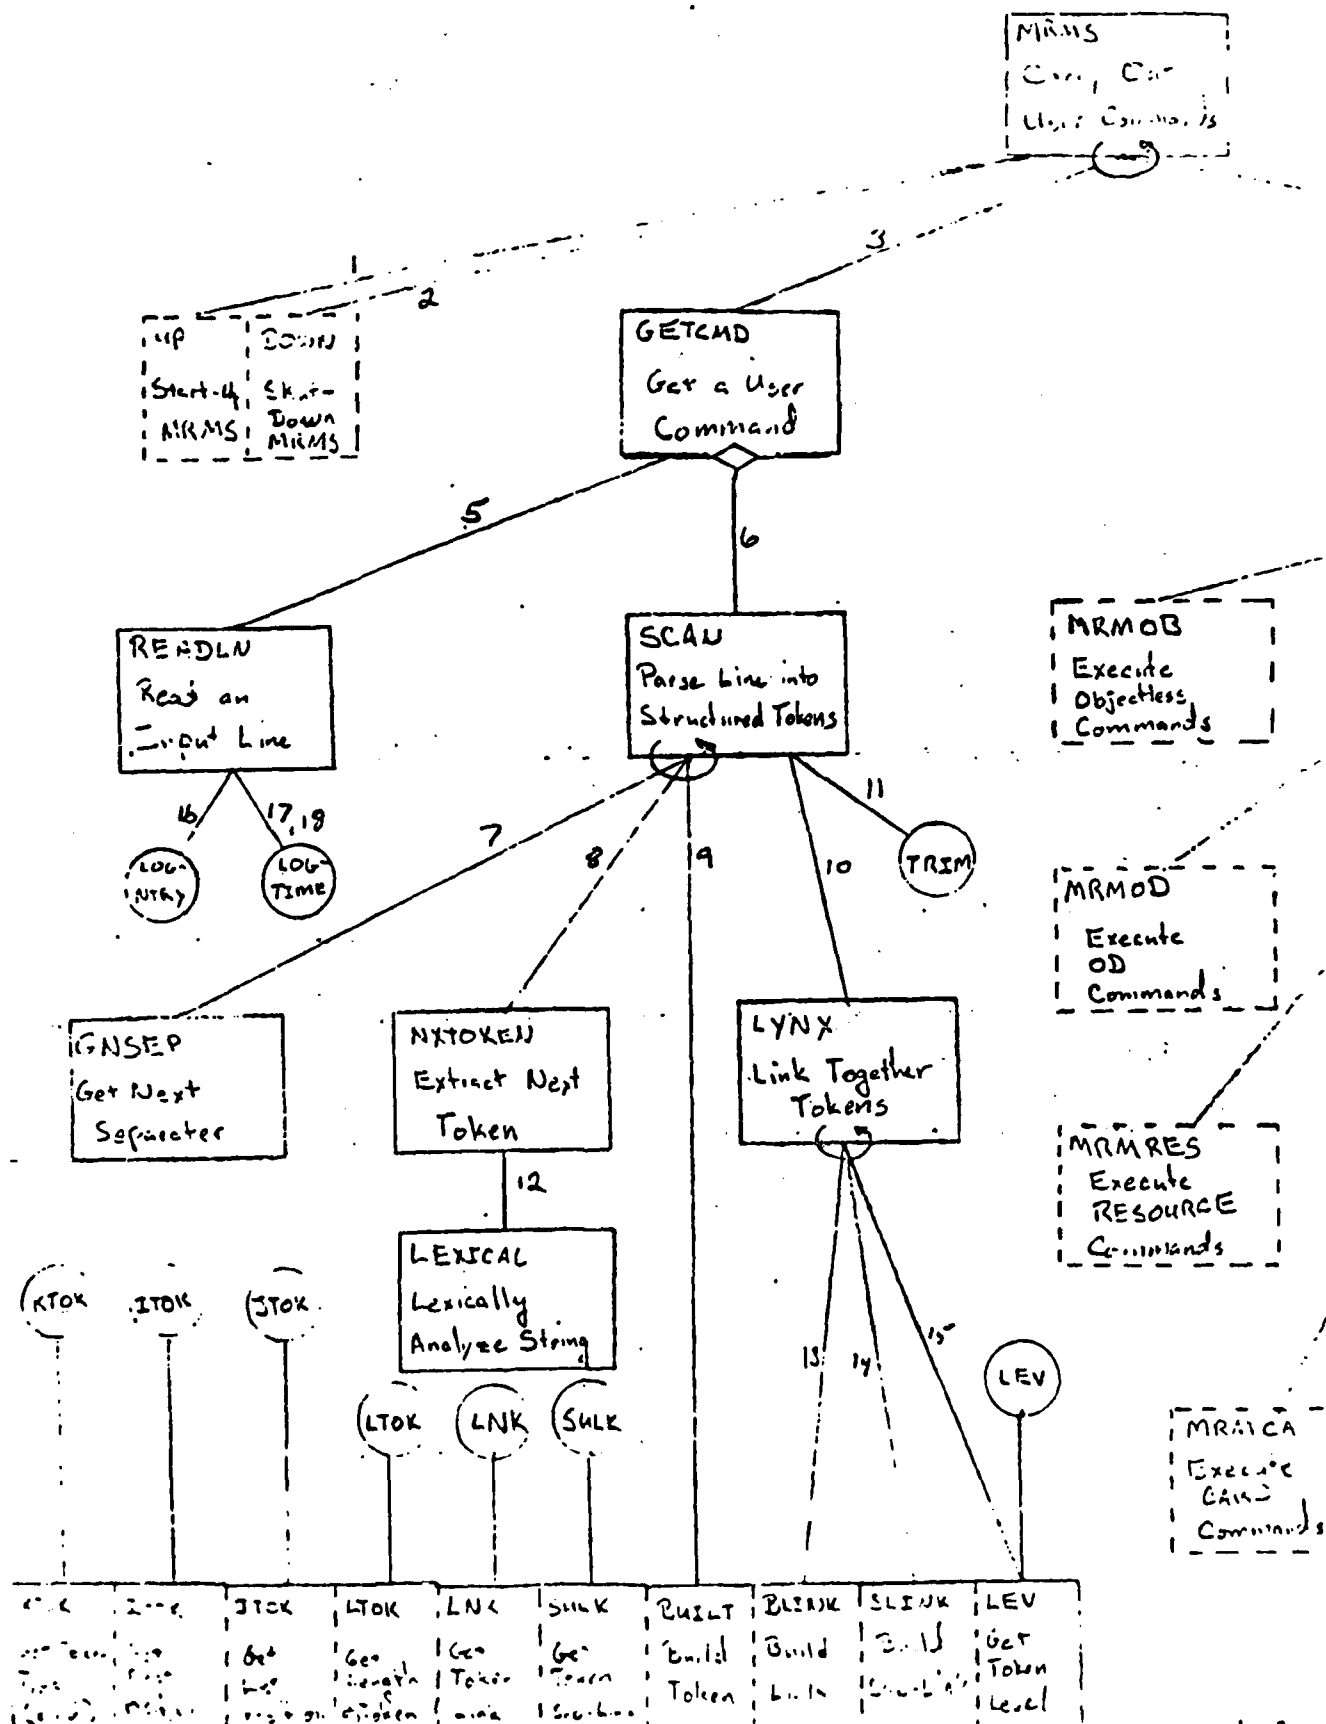 MRMS
User Commands
3
1
2
UP
Start-Up
MRMS
DOWN
Shut-
Down
MRMS
GETCMD
Get a User
Command
5
6
READLN
Read an
Input Line
SCAN
Parse Line into
Structured Tokens
MRMOB
Execute
Objectless
Commands
16
17,18
LOG-
NTRY
LOG-
TIME
7
8
9
10
11
TRIM
MRMOD
Execute
OD
Commands
GNSEP
Get Next
Separater
NXTOKEN
Extract Next
Token
LYNX
Link Together
Tokens
MRMRES
Execute
RESOURCE
Commands
12
LEXICAL
Lexically
Analyze String
KTOK
ITOK
JTOK
LTOK
LNK
SULK
13
14
15
LEV
MRMCA
Execute
Commands
JTOK
Get
LTOK
Get
Length
LNK
Get
Token
SULK
Get
Token
BUILT
Build
Token
BLINK
Build
Link
SLINK
Build
LEV
Get
Token
Level